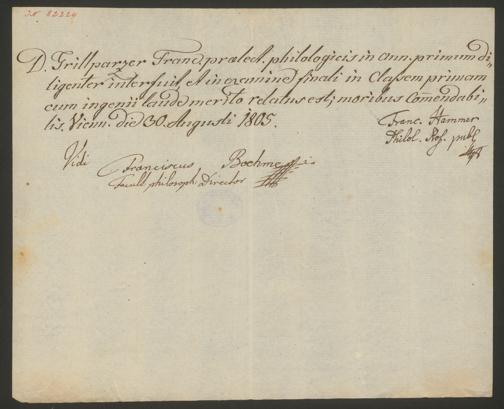 I.N. 82224
D. Grillparzer Franc. prælect. philologicis in ann. primum di„
ligenter interfuit, et in examine finali in Classem primam
cum ingenii laude merito relatus est; moribus Com̄endabi„
lis. Vienn. die 30. Augusti 1805.
Franc. Hammer
Philol. Prof. publ.
Vidi
Franciscus Boehme
Facult. philosoph. Director